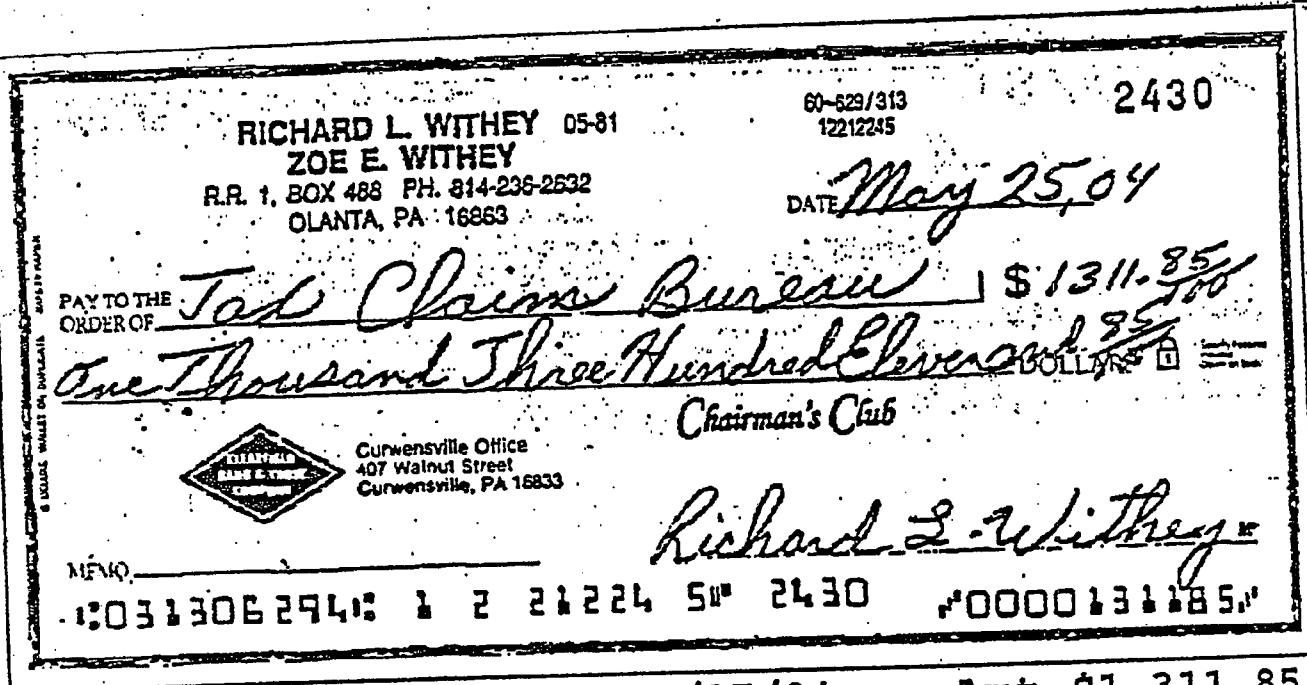 2430
RICHARD L. WITHEY 05-81
ZOE E. WITHEY
R.R. 1, BOX 488 PH. 814-236-2632
OLANTA, PA 16863
60-629/313
12212245
DATE May 25, 04
PAY TO THE
ORDER OF Tax Claim Bureau $ 1311.85/100
One Thousand Three Hundred Eleven and 85/100 DOLLARS
Chairman's Club
Curwensville Office
407 Walnut Street
Curwensville, PA 16833
Richard L. Withey
MEMO
⑆031306294⑆ 1 2 21224 5⑈ 2430 ⑇0000131185⑇
$1,311.85